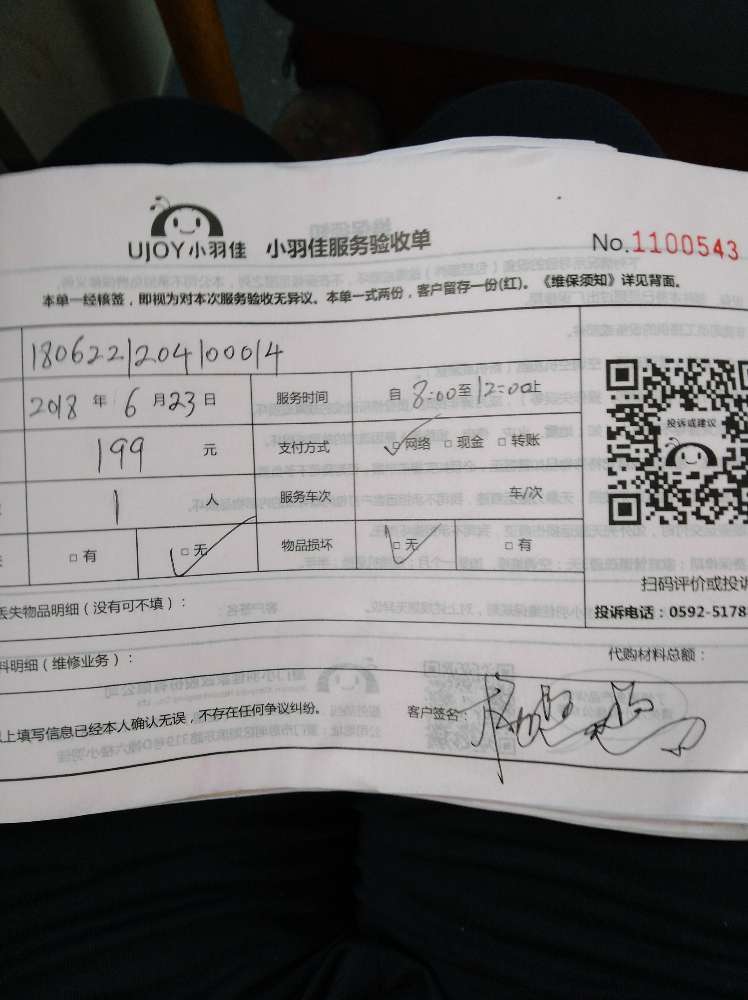 UJOY小羽佳 小羽佳服务验收单 No.1100543
本单一经核签，即视为对本次服务验收无异议。本单一式两份，客户留存一份(红)。《维保须知》详见背面。
180622120410014
2018 年 6 月 23 日 服务时间 自 8:00至12:00止
199 元 支付方式 □网络 □现金 □转账
投诉或建议
1 人 服务车次 车/次
□有 □无 物品损坏 □无 □有
扫码评价或投诉
丢失物品明细（没有可不填）： 投诉电话：0592-5178
料明细（维修业务）： 代购材料总额：
上填写信息已经本人确认无误，不存在任何争议纠纷。 客户签名：